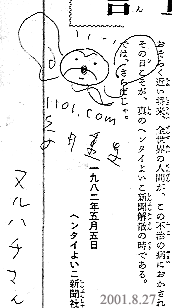 おそらく近い将来、全世界の人間が、この不治の病におかされ
その日こそが、真のヘンタイよいこ新聞解散の時である。
では、さらばじゃ。
一九八二年五月五日
ヘンタイよいこ新聞社
1101.com
ヌルハチまん
2001.8.27